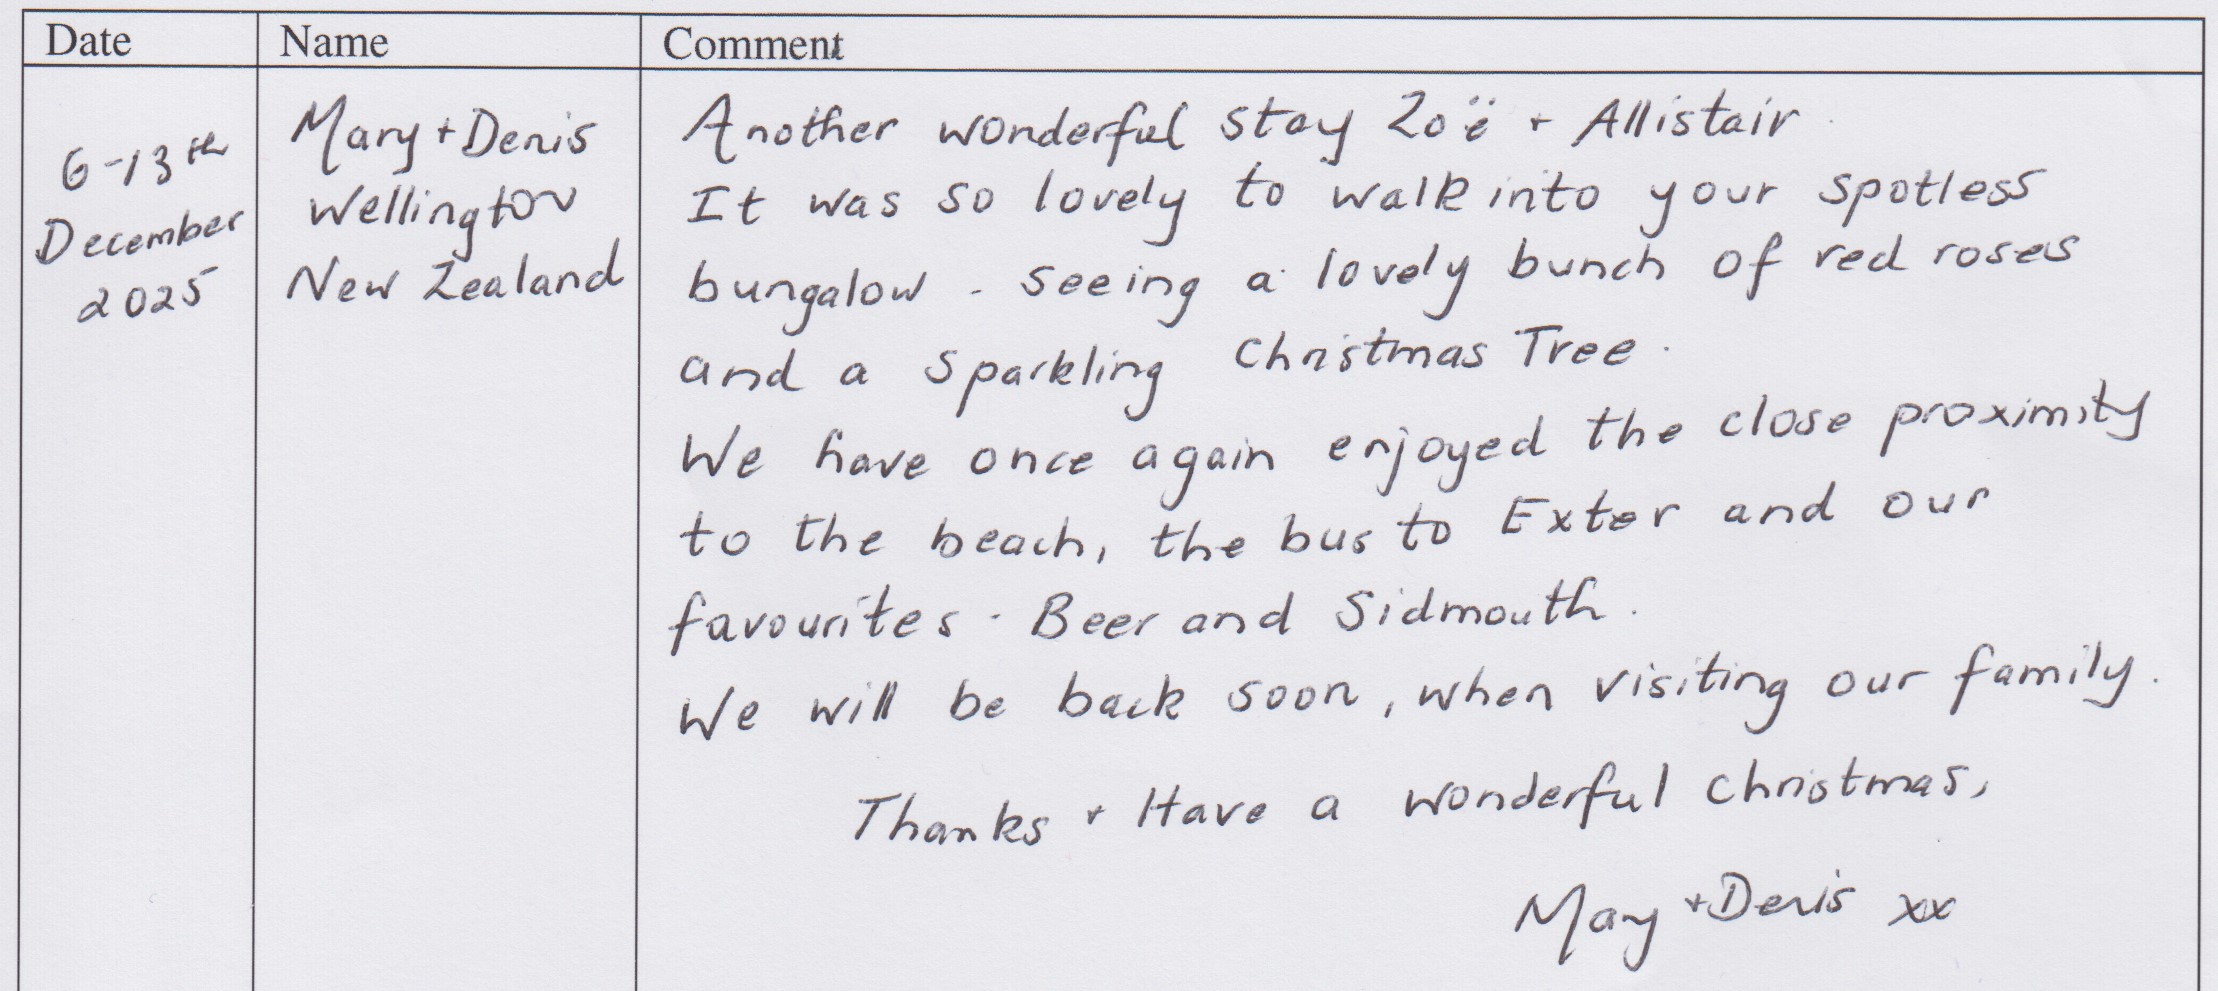 Date Name Comment
6-13th December 2025
Mary + Denis
Wellington
New Zealand
Another wonderful stay Zoë + Allistair.
It was so lovely to walk into your spotless
bungalow - seeing a lovely bunch of red roses
and a sparkling Christmas Tree.
We have once again enjoyed the close proximity
to the beach, the bus to Exter and our
favourites - Beer and Sidmouth.
We will be back soon, when visiting our family.
Thanks + Have a wonderful Christmas,
Mary + Denis xx